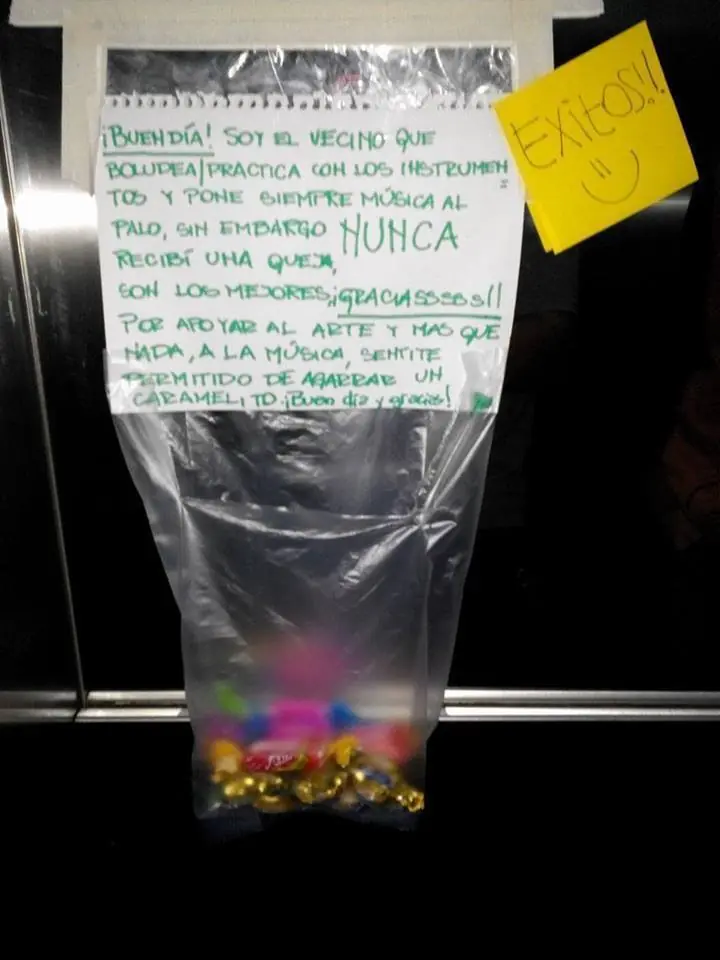 ¡BUEN DÍA! SOY EL VECINO QUE
BOLUDEA/PRACTICA CON LOS INSTRUMEN=
TOS Y PONE SIEMPRE MÚSICA AL
PALO, SIN EMBARGO NUNCA
RECIBÍ UNA QUEJA,
SON LOS MEJORES, ¡GRACIASSSSS!!
POR APOYAR AL ARTE Y MAS QUE
NADA, A LA MÚSICA, SENTITE
PERMITIDO DE AGARRAR UN
CARAMELITO. ¡Buen día y gracias!
EXITOS!!